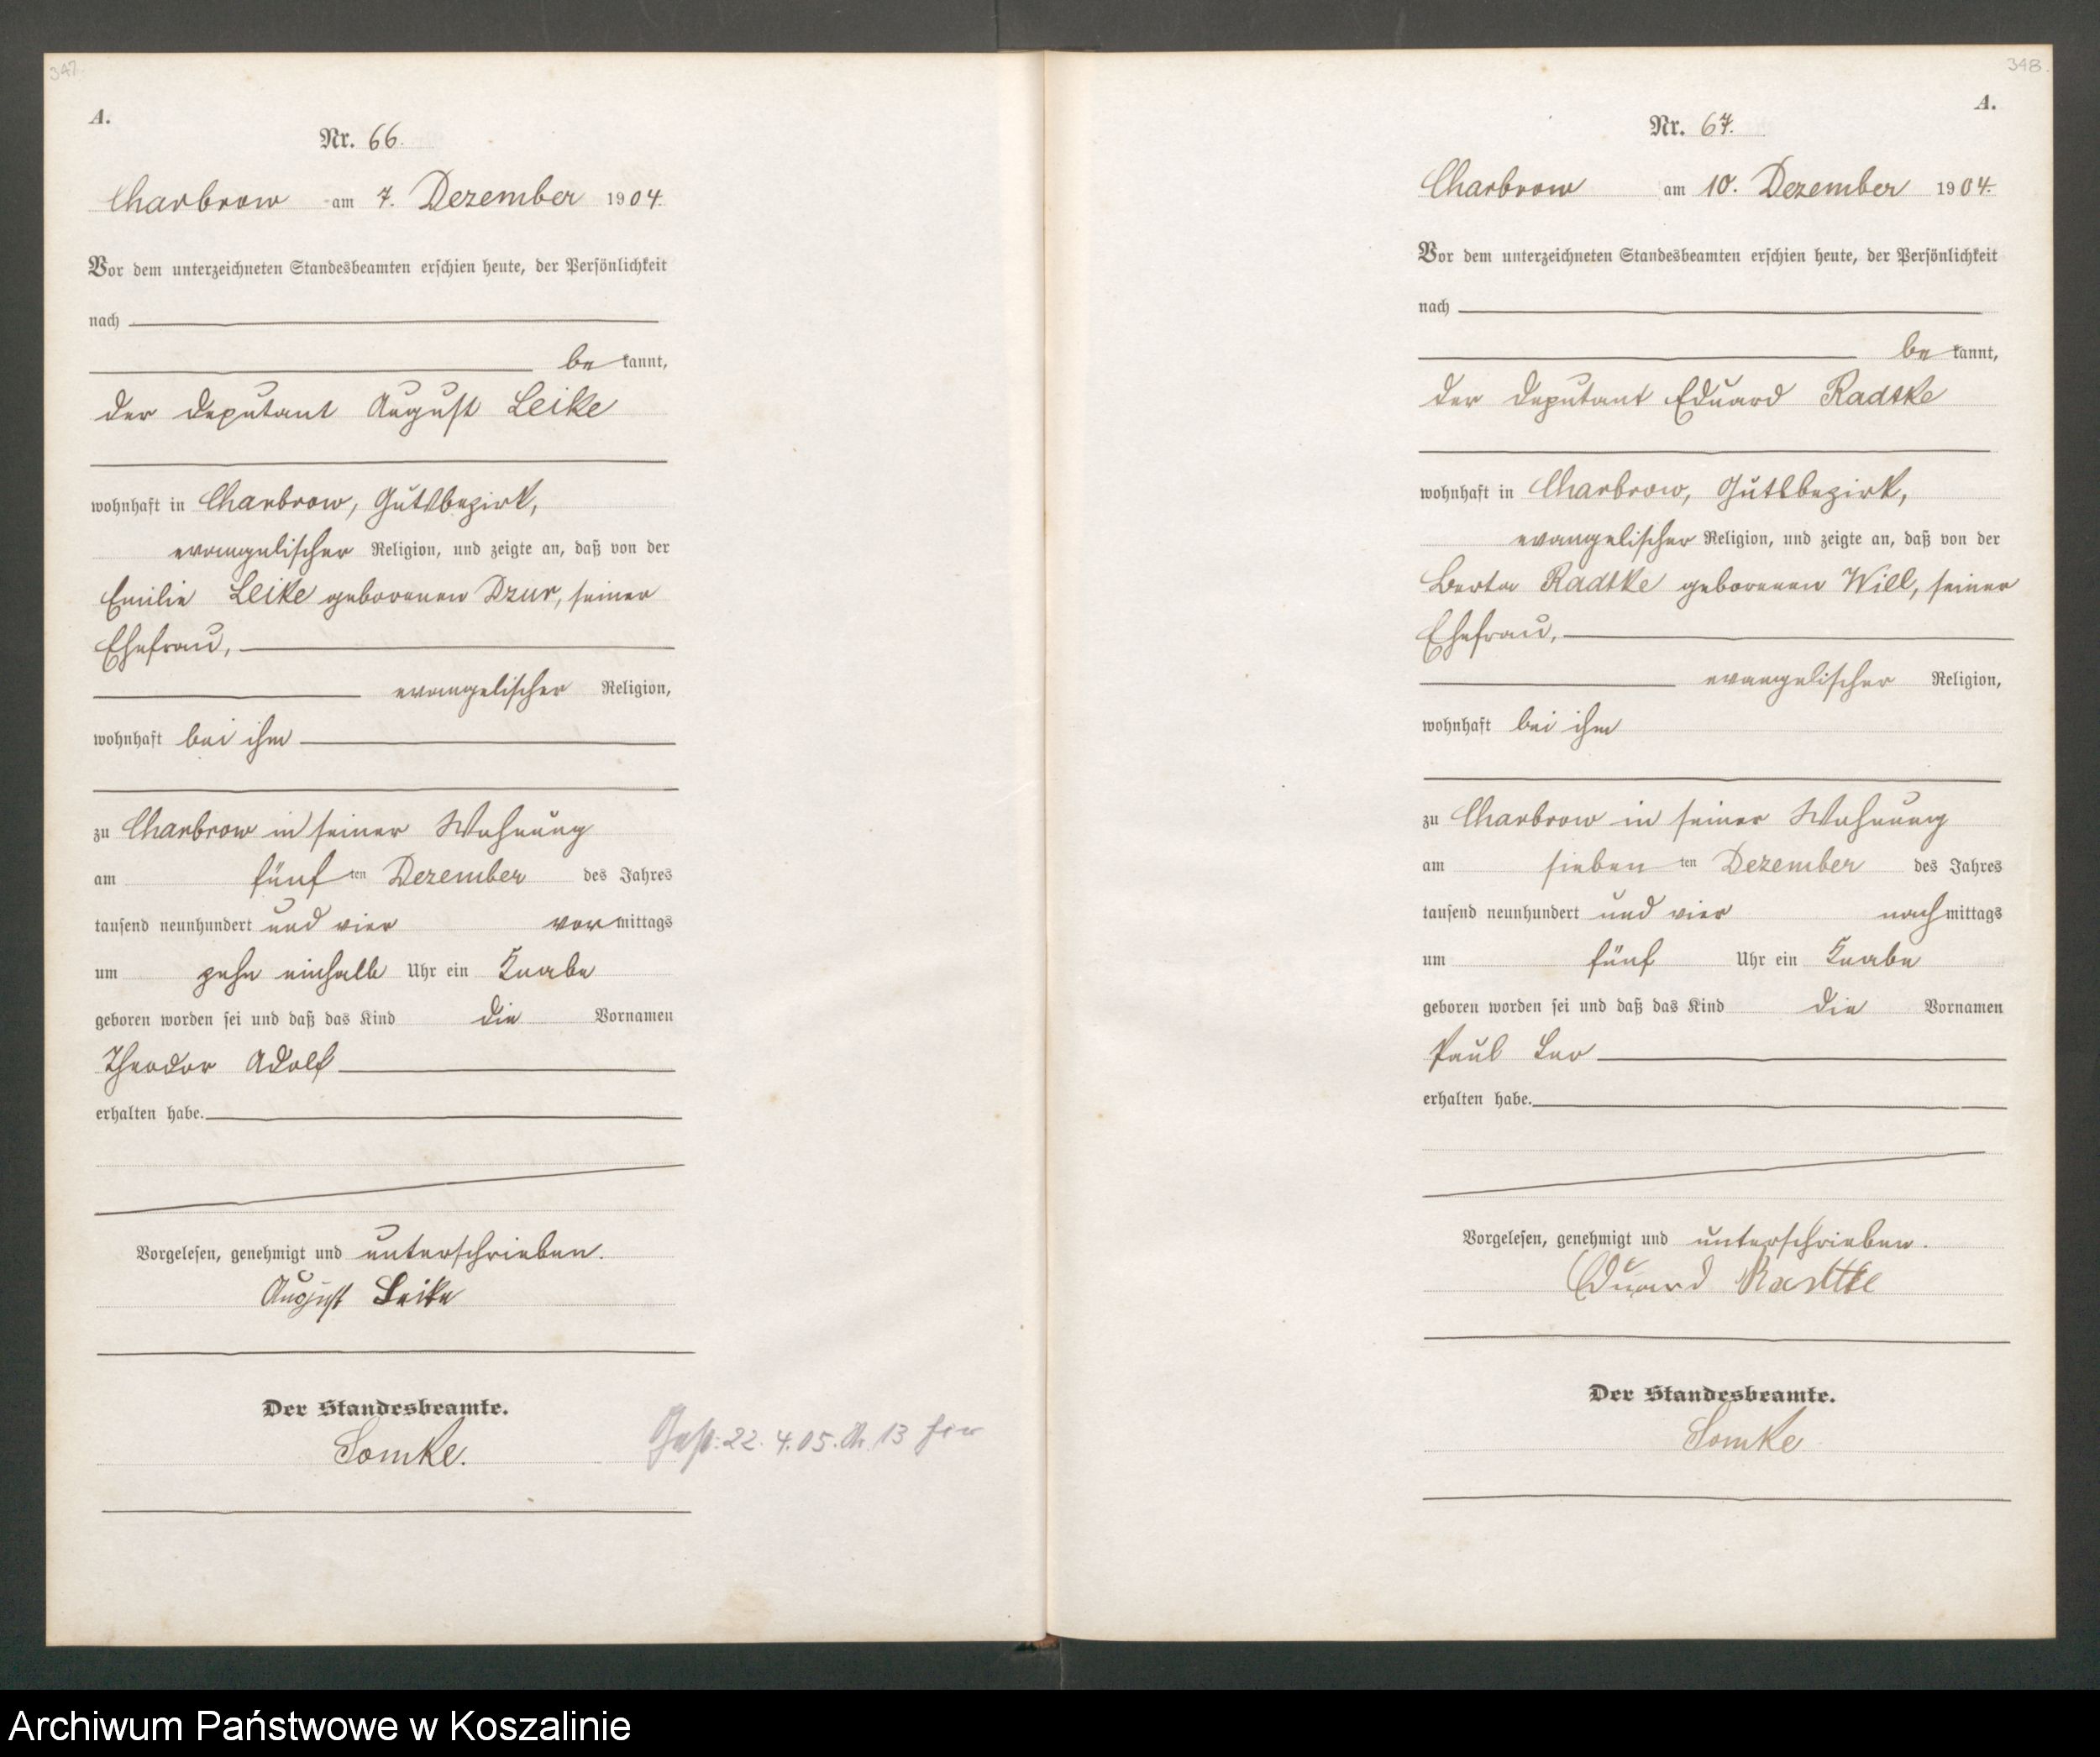 347.
A.
Nr. 66.
Charbrow am 7. Dezember 1904.
Vor dem unterzeichneten Standesbeamten erschien heute, der Persönlichkeit
nach
be kannt,
der Deputant August Leike
wohnhaft in Charbrow, Gutsbezirk,
evangelischer Religion, und zeigte an, daß von der
Emilie Leike geborenen Dzur, seiner
Ehefrau,
evangelischer Religion,
wohnhaft bei ihm
zu Charbrow in seiner Wohnung
am fünf ten Dezember des Jahres
tausend neunhundert und vier vormittags
um zehn einhalb Uhr ein Knabe
geboren worden sei und daß das Kind die Vornamen
Theodor Adolf
erhalten habe.
Vorgelesen, genehmigt und unterschrieben.
August Leike
Der Standesbeamte.
Lomke.
22. 4. 05. 13
348.
A.
Nr. 67.
Charbrow am 10. Dezember 1904.
Vor dem unterzeichneten Standesbeamten erschien heute, der Persönlichkeit
nach
be kannt,
der Deputant Eduard Radtke
wohnhaft in Charbrow, Gutsbezirk,
evangelischer Religion, und zeigte an, daß von der
Berta Radtke geborenen Will, seiner
Ehefrau,
evangelischer Religion,
wohnhaft bei ihm
zu Charbrow in seiner Wohnung
am sieben ten Dezember des Jahres
tausend neunhundert und vier nachmittags
um fünf Uhr ein Knabe
geboren worden sei und daß das Kind die Vornamen
Paul Leo
erhalten habe.
Vorgelesen, genehmigt und unterschrieben.
Eduard Radtke
Der Standesbeamte.
Lomke
Archiwum Państwowe w Koszalinie